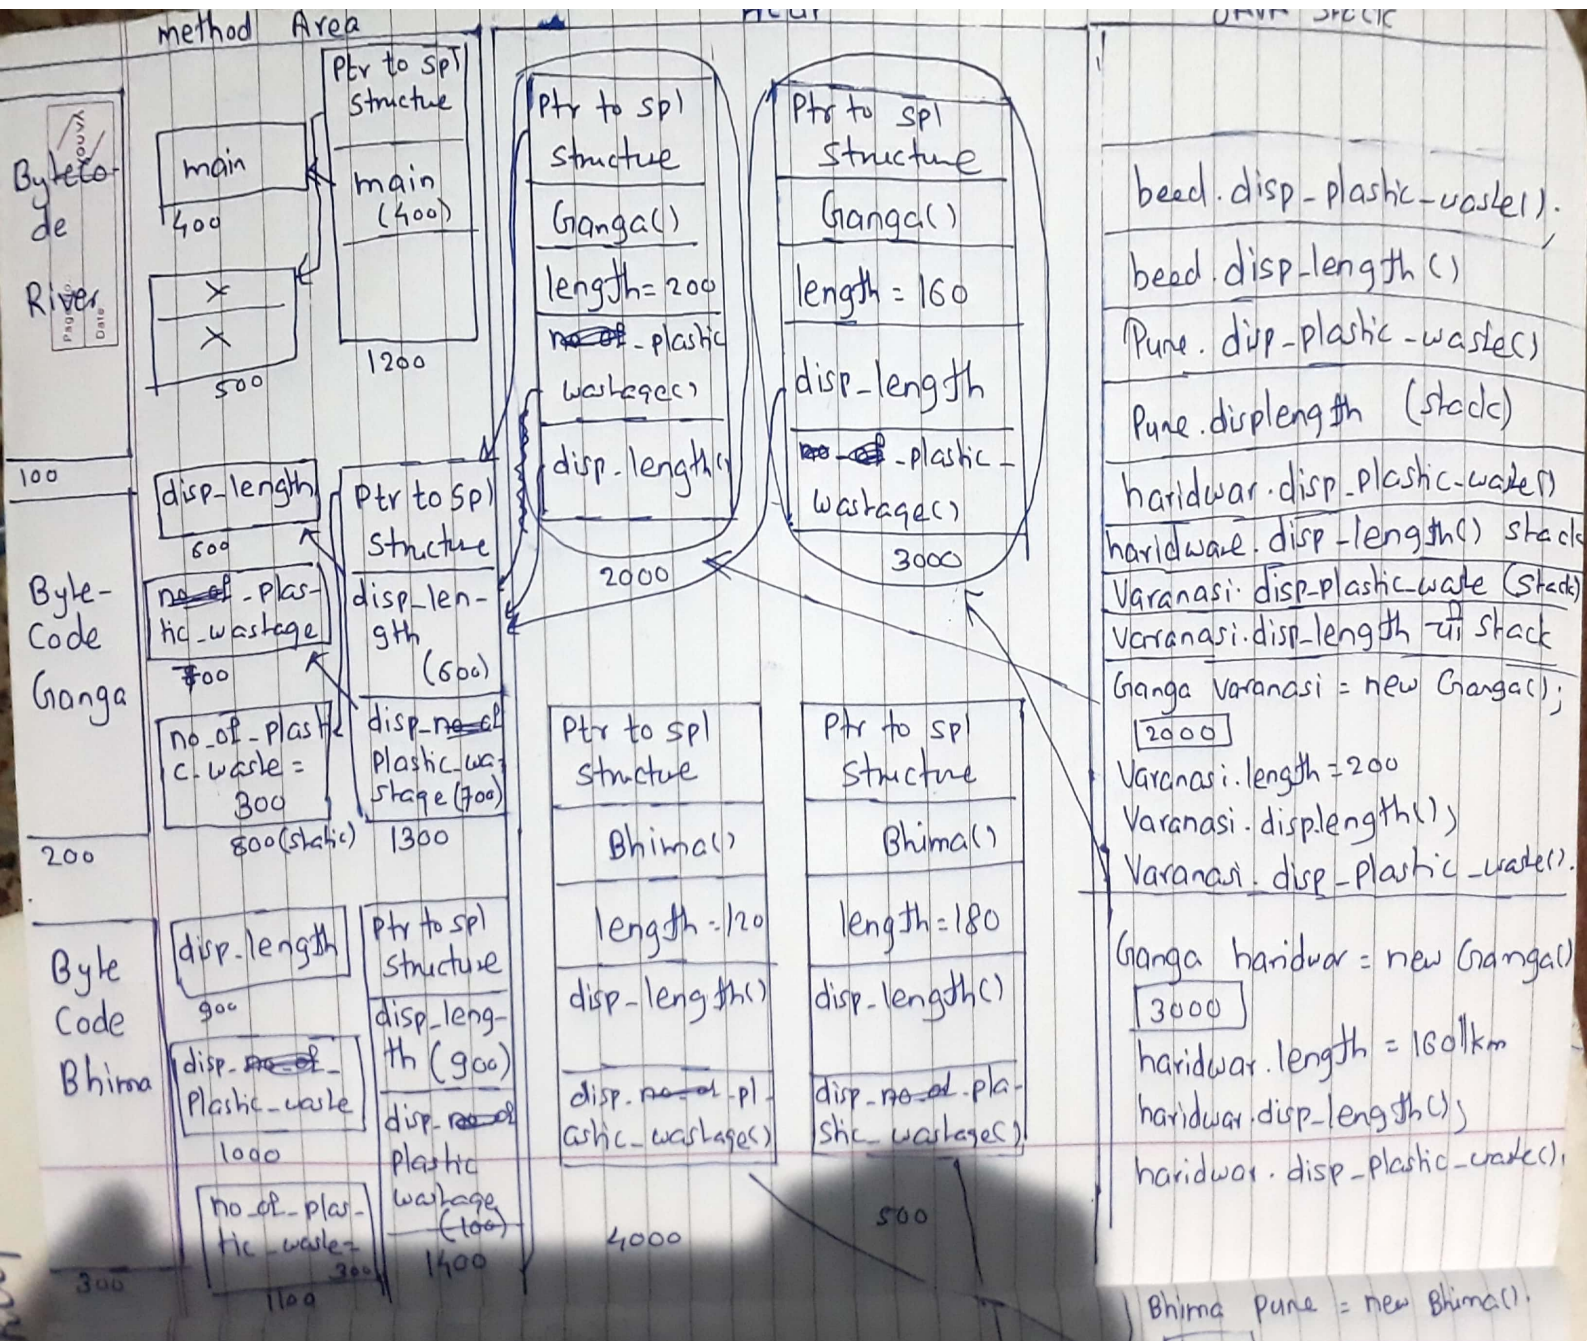 method Area
Ptr to spl
structure
main
(400)
1200
main
400
X
X
500
Byteco-
de
River
100
Youva
Date
disp-length
600
no of-plas-
tic-wastage
700
no-of-plasti
c-waste =
300
800 (static)
Ptr to Spl
Structure
disp-len-
gth
(600)
disp-no of
Plastic-wa-
stage (700)
1300
Byte-
Code
Ganga
200
Byte
Code
Bhima
300
disp-length
900
disp-no-of-
Plastic-waste
1000
no-of-plas-
tic-waste=
300
1100
Ptr to spl
structure
disp-leng-
th (900)
disp-no of
Plastic
wastage
(100)
1400
Heap
Ptr to spl
Structure
Ganga()
length=200
no of-plastic
wastage()
disp-length()
2000
Ptr to spl
Structure
Ganga()
length = 160
disp-length
no-of-plastic-
wastage()
3000
Ptr to spl
structure
Bhima()
length=120
disp-length()
disp-no-of-pl
astic-wastage()
4000
Ptr to spl
structure
Bhima()
length=180
disp-length()
disp-no-of-pla-
stic-wastage()
500
JAVA Stack
beed.disp-plastic-waste();
beed.disp-length()
Pune.disp-plastic-waste()
Pune.displength (stack)
haridwar.disp-plastic-waste()
haridware.disp-length() stack
Varanasi.disp-plastic-waste (stack)
varanasi.disp-length चा stack
Ganga varanasi = new Ganga();
2000
Varanasi.length=200
Varanasi.displength();
Varanasi.disp-plastic-waste().
Ganga haridwar = new Ganga()
3000
haridwar.length = 160km
haridwar.disp-length();
haridwar.disp-plastic-waste();
Bhima Pune = new Bhima().